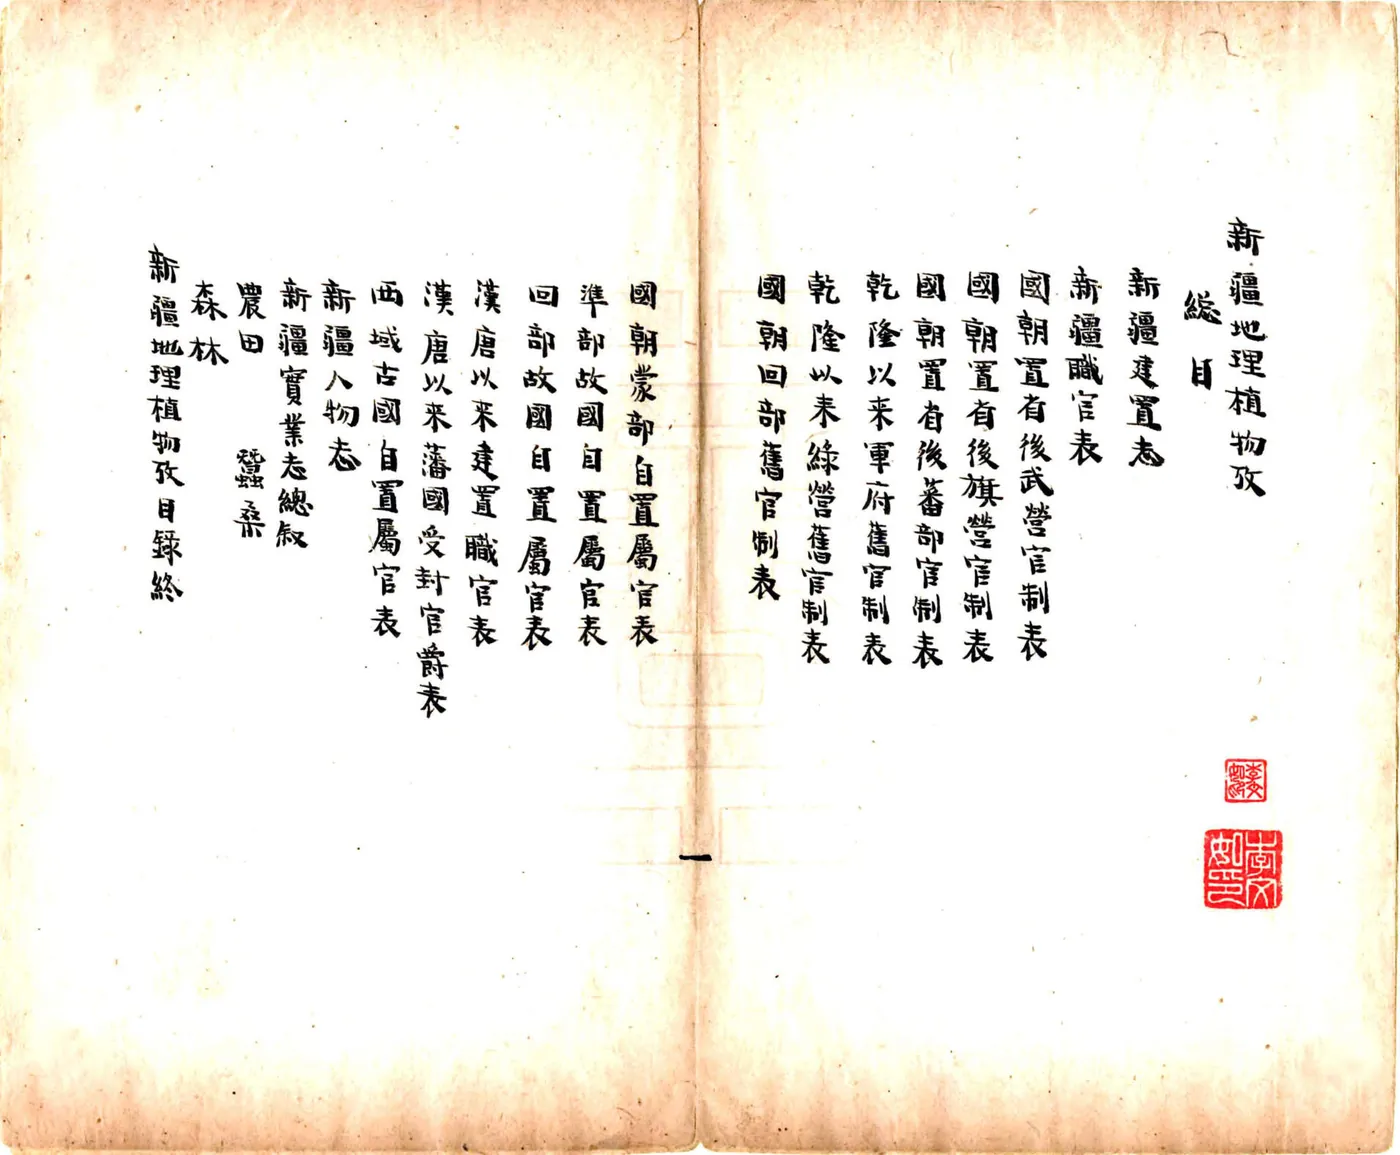 新疆地理植物攷
総目
新疆建置志
新疆職官表
國朝置省後武營官制表
國朝置省後旗營官制表
國朝置省後蕃部官制表
乾隆以來軍府舊官制表
乾隆以來綠營舊官制表
國朝回部舊官制表
國朝蒙部自置屬官表
準部故國自置屬官表
回部故國自置屬官表
漢唐以來建置職官表
漢唐以來藩國受封官爵表
西域古國自置屬官表
新疆人物志
新疆實業志總叙
農田 蠶桑
森林
新疆地理植物攷目録終
一
李文
如印